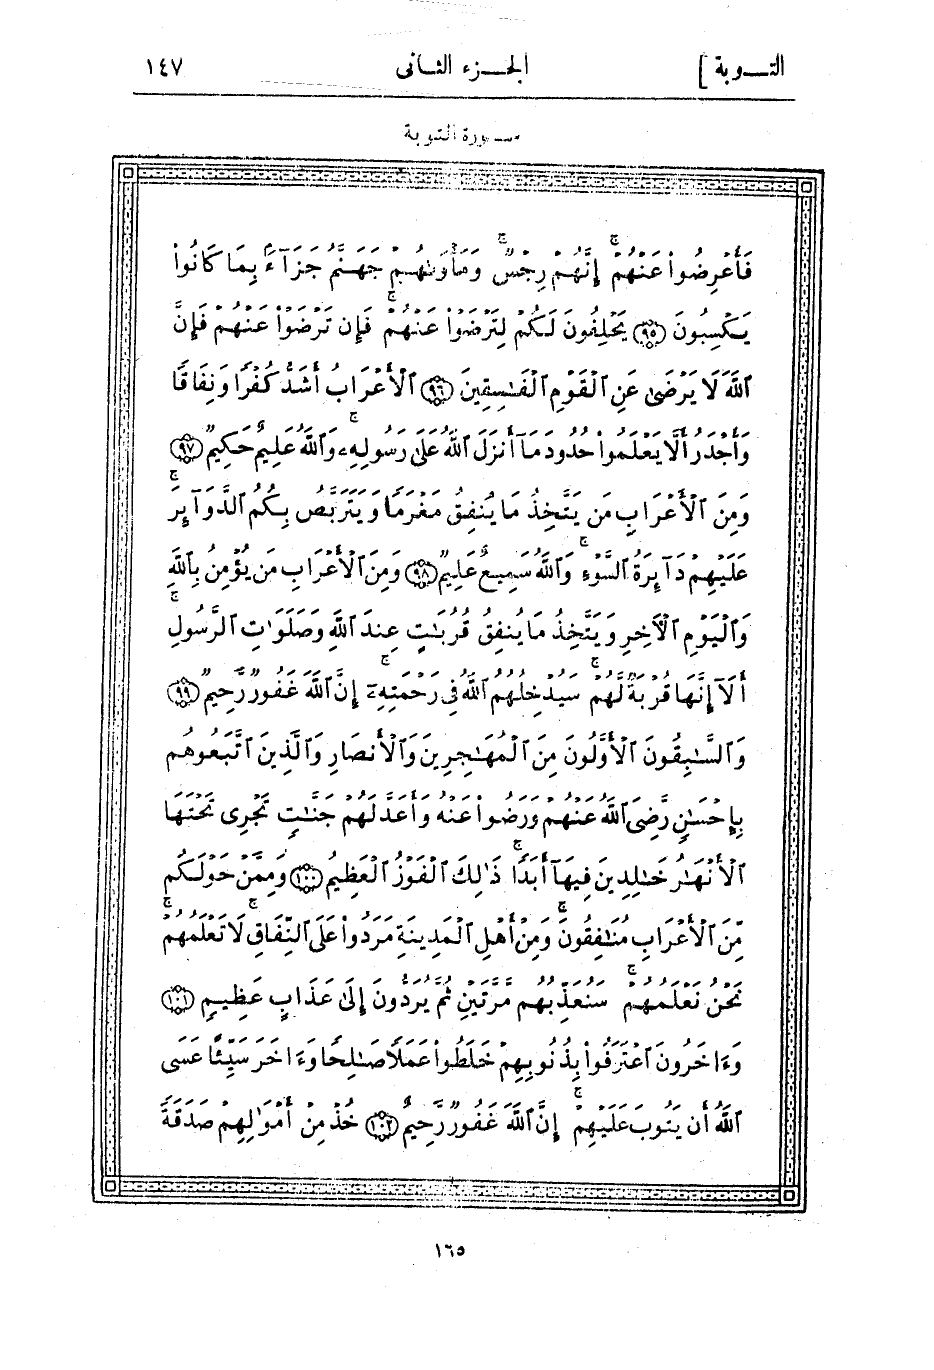 التــوبة ] الجــزء الثانى ١٤٧
ســورة التوبة
فَأَعْرِضُوا۟ عَنْهُمْ ۖ إِنَّهُمْ رِجْسٌ ۖ وَمَأْوَىٰهُمْ جَهَنَّمُ جَزَآءًۢ بِمَا كَانُوا۟
يَكْسِبُونَ ﴿٩٥﴾ يَحْلِفُونَ لَكُمْ لِتَرْضَوْا۟ عَنْهُمْ ۖ فَإِن تَرْضَوْا۟ عَنْهُمْ فَإِنَّ
ٱللَّهَ لَا يَرْضَىٰ عَنِ ٱلْقَوْمِ ٱلْفَـٰسِقِينَ ﴿٩٦﴾ ٱلْأَعْرَابُ أَشَدُّ كُفْرًا وَنِفَاقًا
وَأَجْدَرُ أَلَّا يَعْلَمُوا۟ حُدُودَ مَآ أَنزَلَ ٱللَّهُ عَلَىٰ رَسُولِهِۦ ۗ وَٱللَّهُ عَلِيمٌ حَكِيمٌ ﴿٩٧﴾
وَمِنَ ٱلْأَعْرَابِ مَن يَتَّخِذُ مَا يُنفِقُ مَغْرَمًا وَيَتَرَبَّصُ بِكُمُ ٱلدَّوَآئِرَ ۚ
عَلَيْهِمْ دَآئِرَةُ ٱلسَّوْءِ ۗ وَٱللَّهُ سَمِيعٌ عَلِيمٌ ﴿٩٨﴾ وَمِنَ ٱلْأَعْرَابِ مَن يُؤْمِنُ بِٱللَّهِ
وَٱلْيَوْمِ ٱلْـَٔاخِرِ وَيَتَّخِذُ مَا يُنفِقُ قُرُبَـٰتٍ عِندَ ٱللَّهِ وَصَلَوَٰتِ ٱلرَّسُولِ ۚ
أَلَآ إِنَّهَا قُرْبَةٌ لَّهُمْ ۚ سَيُدْخِلُهُمُ ٱللَّهُ فِى رَحْمَتِهِۦٓ ۗ إِنَّ ٱللَّهَ غَفُورٌ رَّحِيمٌ ﴿٩٩﴾
وَٱلسَّـٰبِقُونَ ٱلْأَوَّلُونَ مِنَ ٱلْمُهَـٰجِرِينَ وَٱلْأَنصَارِ وَٱلَّذِينَ ٱتَّبَعُوهُم
بِإِحْسَـٰنٍ رَّضِىَ ٱللَّهُ عَنْهُمْ وَرَضُوا۟ عَنْهُ وَأَعَدَّ لَهُمْ جَنَّـٰتٍ تَجْرِى تَحْتَهَا
ٱلْأَنْهَـٰرُ خَـٰلِدِينَ فِيهَآ أَبَدًا ۚ ذَٰلِكَ ٱلْفَوْزُ ٱلْعَظِيمُ ﴿١٠٠﴾ وَمِمَّنْ حَوْلَكُم
مِّنَ ٱلْأَعْرَابِ مُنَـٰفِقُونَ ۖ وَمِنْ أَهْلِ ٱلْمَدِينَةِ ۖ مَرَدُوا۟ عَلَى ٱلنِّفَاقِ لَا تَعْلَمُهُمْ ۖ
نَحْنُ نَعْلَمُهُمْ ۚ سَنُعَذِّبُهُم مَّرَّتَيْنِ ثُمَّ يُرَدُّونَ إِلَىٰ عَذَابٍ عَظِيمٍ ﴿١٠١﴾
وَءَاخَرُونَ ٱعْتَرَفُوا۟ بِذُنُوبِهِمْ خَلَطُوا۟ عَمَلًا صَـٰلِحًا وَءَاخَرَ سَيِّئًا عَسَى
ٱللَّهُ أَن يَتُوبَ عَلَيْهِمْ ۚ إِنَّ ٱللَّهَ غَفُورٌ رَّحِيمٌ ﴿١٠٢﴾ خُذْ مِنْ أَمْوَٰلِهِمْ صَدَقَةً
١٦٥